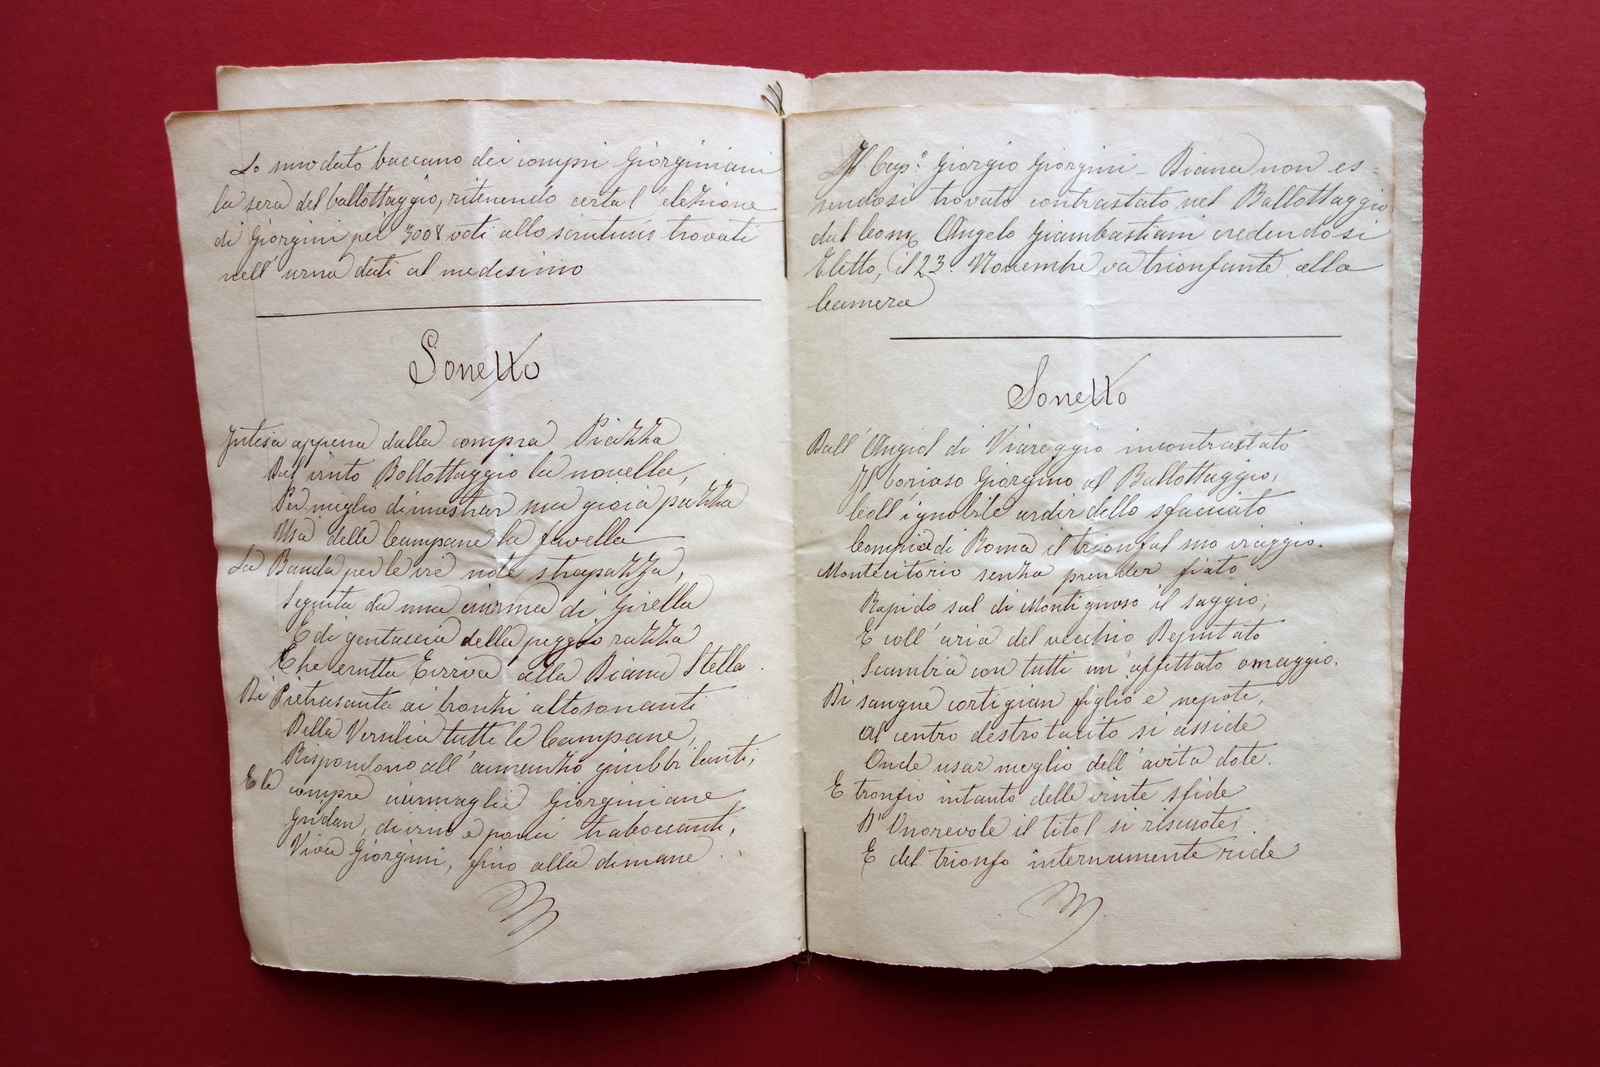 Lo smodato baccano dei compri Giorginiani
la sera del ballottaggio, ritenendo certa l'elezione
di Giorgini per 3008 voti allo scrutinio trovati
nell'urna dati al medesimo
Sonetto
Intesa appena dalla compra Piazza
Del vinto Ballottaggio la novella,
Per meglio dimostrar sua gioia pazza
Usa delle Campane la favella
La Banda per le vie note strapazza,
Seguita da una ciurma di Girella
E di gentaccia della peggio razza
Che erutta Evviva alla Diana Stella.
Di Pietrasanta ai bronzi altosonanti
Della Versilia tutte le Campane,
Rispondono all'annunzio giubbilanti;
E le compre ciurmaglie Giorginiane
Gridan, di vino e ponci traboccanti,
Viva Giorgini, fino alla dimane.
Il Cogo. Giorgio Giorgini-Diana non es=
sendosi trovato contrastato nel Ballottaggio
dal Comm Angelo Giambastiani credendosi
Eletto, il 23 Novembre va trionfante alla
Camera
Sonetto
Dall'Angiol di Viareggio incontrastato
Il borioso Giorgino al Ballottaggio,
Coll'ignobile ardir dello sfacciato
Compie di Roma il trionfal suo viaggio.
Montecitorio senza prender fiato
Rapido sal di Montignoso il saggio,
E coll'aria del vecchio Deputato
Scambia con tutti un affettato omaggio.
Di sangue cortigian figlio e nepote,
Al centro destro tacito si asside
Onde usar meglio dell'avita dote.
E tronfio intanto delle vinte sfide
D'Onorevole il titol si riscuote,
E del trionfo internamente ride